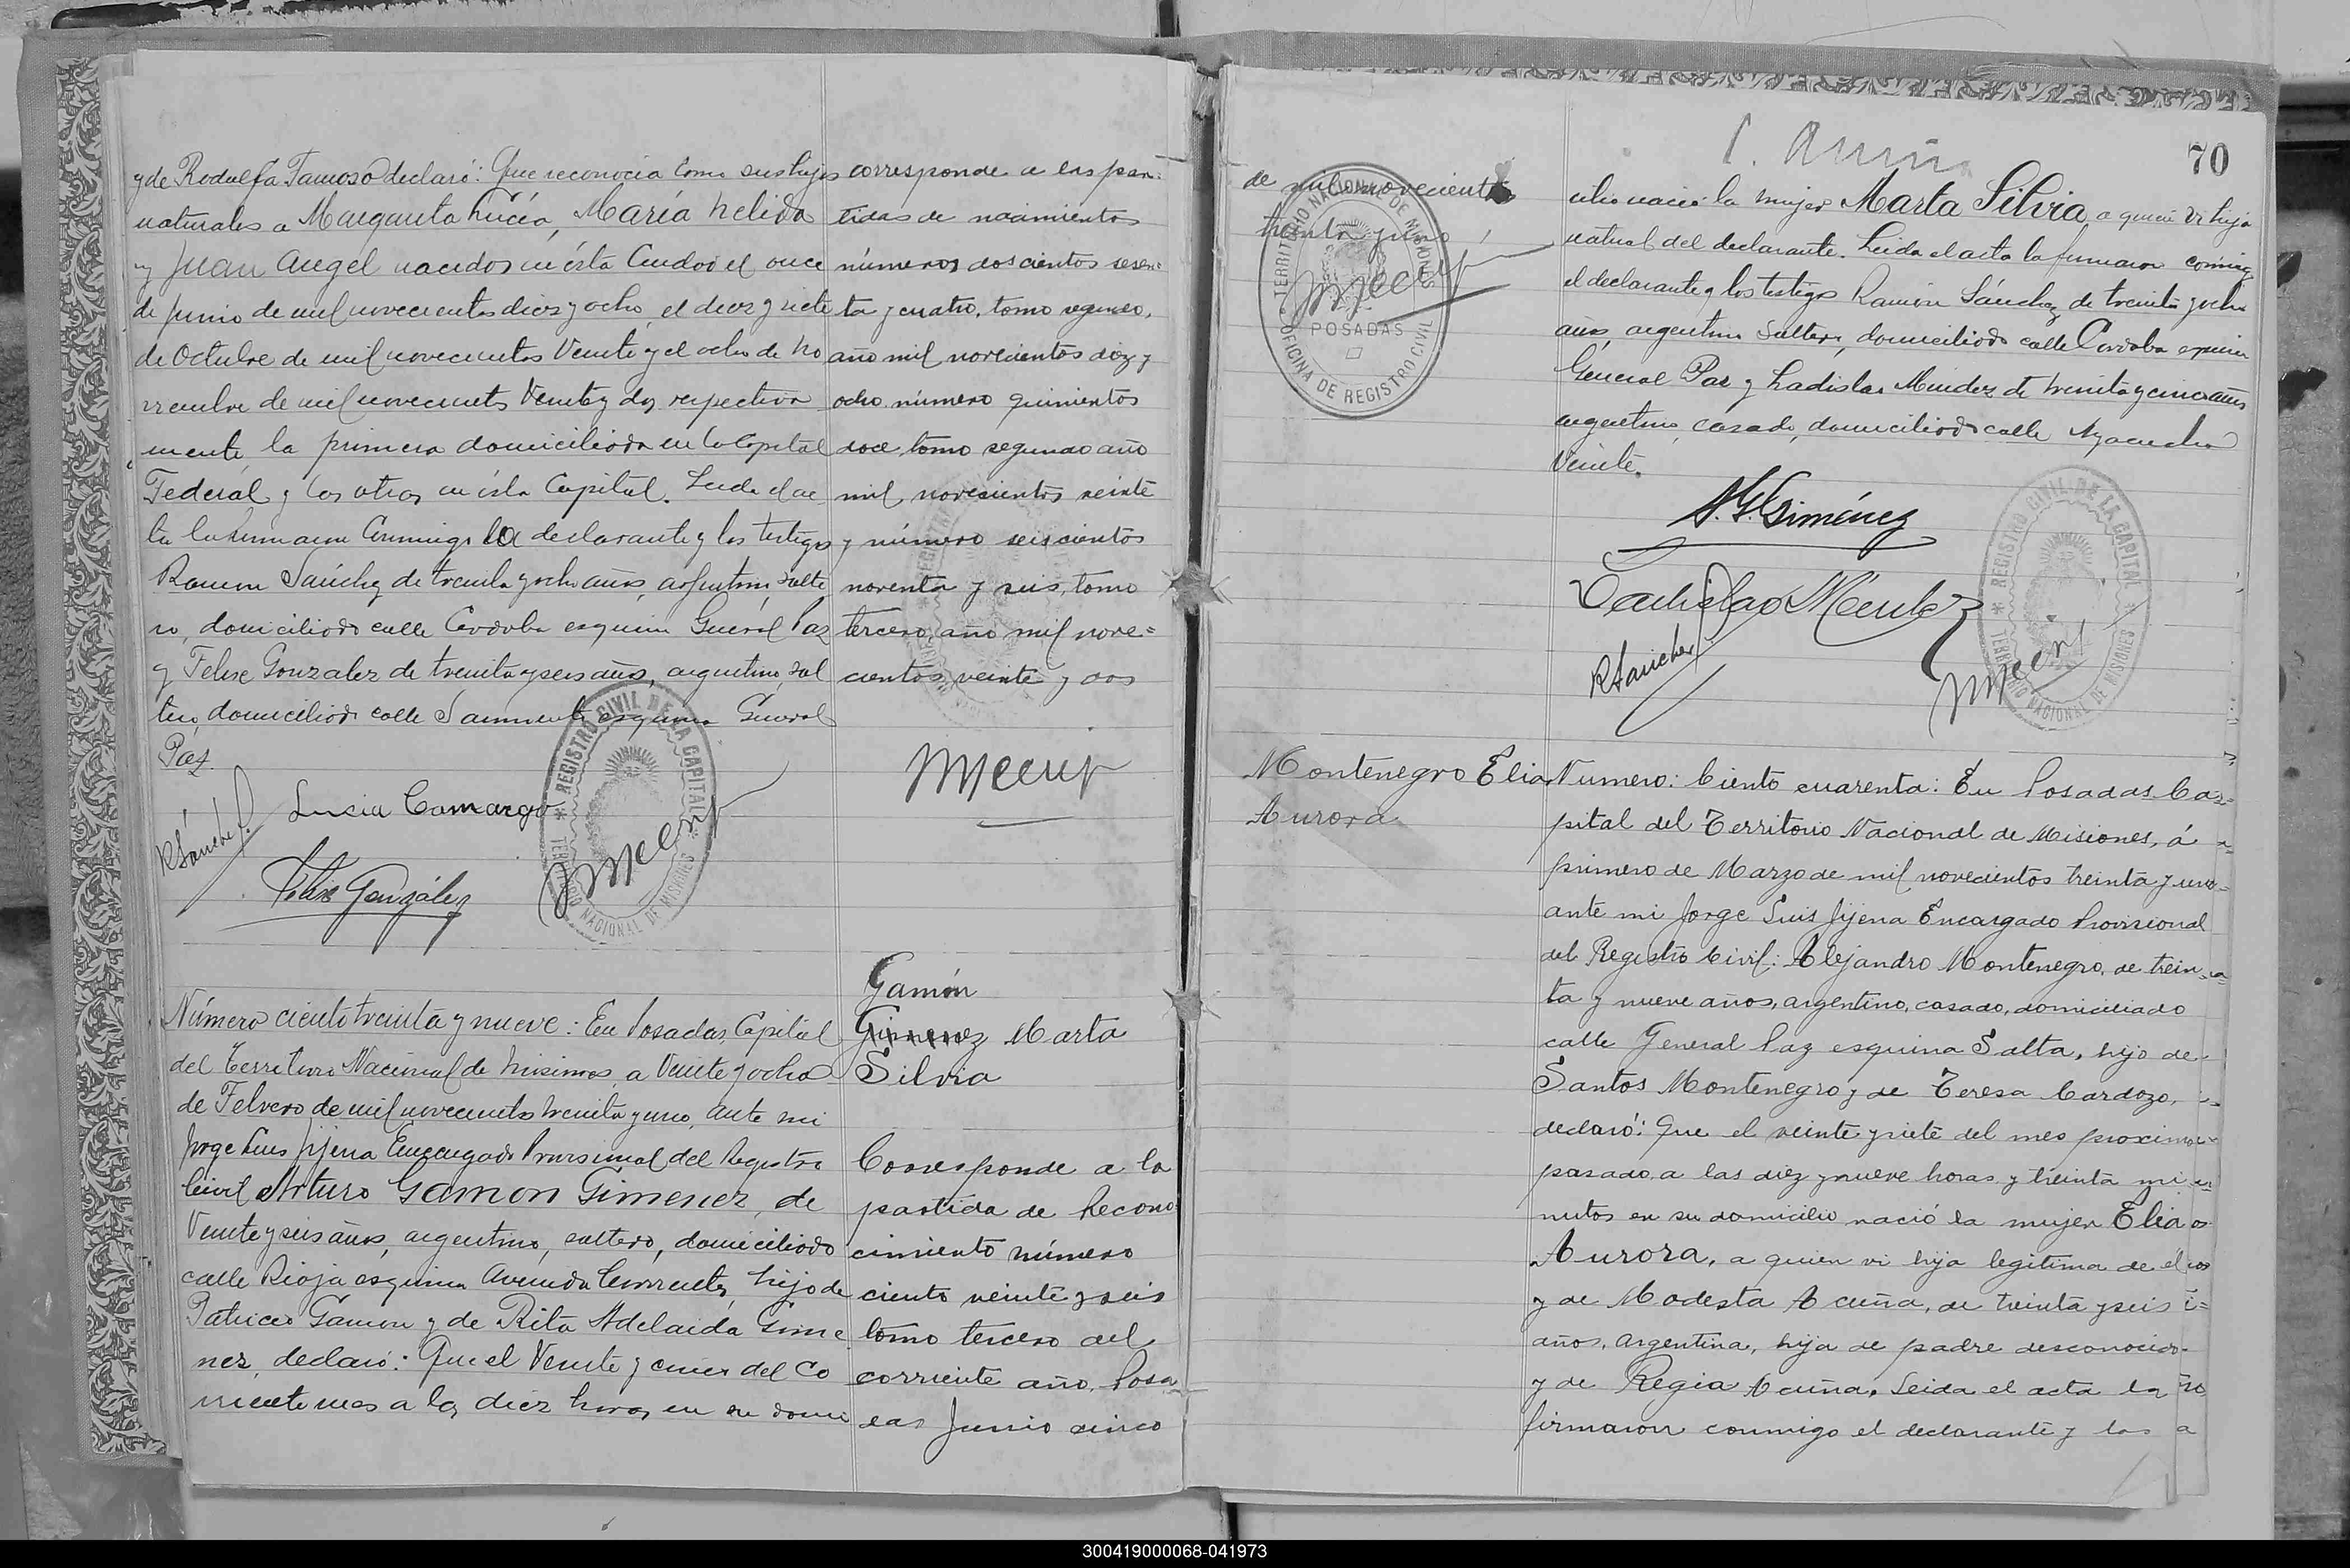 y de Rodolfa Famoso declaró: Que reconocia como sus hijos
naturales a Margarita Lucía, María Nelida
y Juan Angel nacidos en ésta Ciudad el once
de Junio de mil novecientos diez y ocho, el diez y siete
de Octubre de mil novecientos Veinte y el ocho de No
viembre de mil novecientos Veinte y dos respectiva
mente, la primera domiciliada en la Capital
Federal y los otros en ésta Capital. Leida el ac
ta la firmaron Conmigo la declarante y los testigos
Ramon Sánchez de treinta y ocho años, argentino, solte
ro, domiciliado calle Cordoba esquina General Paz
y Felix Gonzalez de treinta y seis años, argentino, sol
tero, domiciliado calle Sarmiento esquina General
Paz.
corresponde a las par=
tidas de nacimientos
números doscientos sesen=
ta y cuatro, tomo segundo,
año mil novecientos diez y
ocho, número quinientos
doce, tomo segundo año
mil novecientos veinte
y número seiscientos
noventa y seis, tomo
tercero, año mil nove=
cientos veinte y dos
RSánchez
Lucia Camargo
Felix González
REGISTRO CIVIL DE LA CAPITAL
TERRITORIO NACIONAL DE MISIONES
Número ciento treinta y nueve: En Posadas, Capital
del Territorio Nacional de Misiones, a Veinte y ocho
de Febrero de mil novecientos treinta y uno, ante mi
Jorge Luis Jijena Encargado Provisional del Registro
Civil Arturo Gamon Gimenez, de
Veinte y seis años, argentino, soltero, domiciliado
calle Rioja esquina Avenida Corrientes, hijo de
Patricio Gamon y de Rita Adelaida Gime
nez, declaró: Que el Veinte y cinco del Co
rriente mes a las diez horas en su domi
Gamón
Gimenez Marta
Silvia
Corresponde a la
partida de Recono
cimiento número
ciento veinte y seis
tomo tercero del
corriente año. Posa
das Junio cinco
70
de mil novecientos
treinta y uno
TERRITORIO NACIONAL DE MISIONES
POSADAS
OFICINA DE REGISTRO CIVIL
cilio nació la mujer Marta Silvia, a quien vi hija
natural del declarante. Leida el acta la firmaron conmigo
el declarante y los testigos Ramón Sánchez, de treinta y ocho
años, argentino soltero, domiciliado calle Cordoba esquina
General Paz y Ladislao Mendez de treinta y cinco años
argentino, casado, domiciliado calle Ayacucho
Veinte.
A. G. Giménez
Ladislao Méndez
RSanchez
REGISTRO CIVIL DE LA CAPITAL
TERRITORIO NACIONAL DE MISIONES
Montenegro Elia
Aurora
Numero: Ciento cuarenta: En Posadas Ca=
pital del Territorio Nacional de Misiones, á
primero de Marzo de mil novecientos treinta y uno
ante mi Jorge Luis Jijena Encargado Provisional
del Registro Civil: Alejandro Montenegro, de trein=
ta y nueve años, argentino, casado, domiciliado
calle General Paz esquina Salta, hijo de
Santos Montenegro y de Teresa Cardozo,
declaró: Que el veinte y siete del mes proximo
pasado, a las diez y nueve horas y treinta mi
nutos en su domicilio nació la mujer Elia
Aurora, a quien vi hija legitima de el
y de Modesta Acuña, de treinta y seis
años, argentina, hija de padre desconocido
y de Regia Acuña. Leida el acta la
firmaron conmigo el declarante y los
300419000068-041973